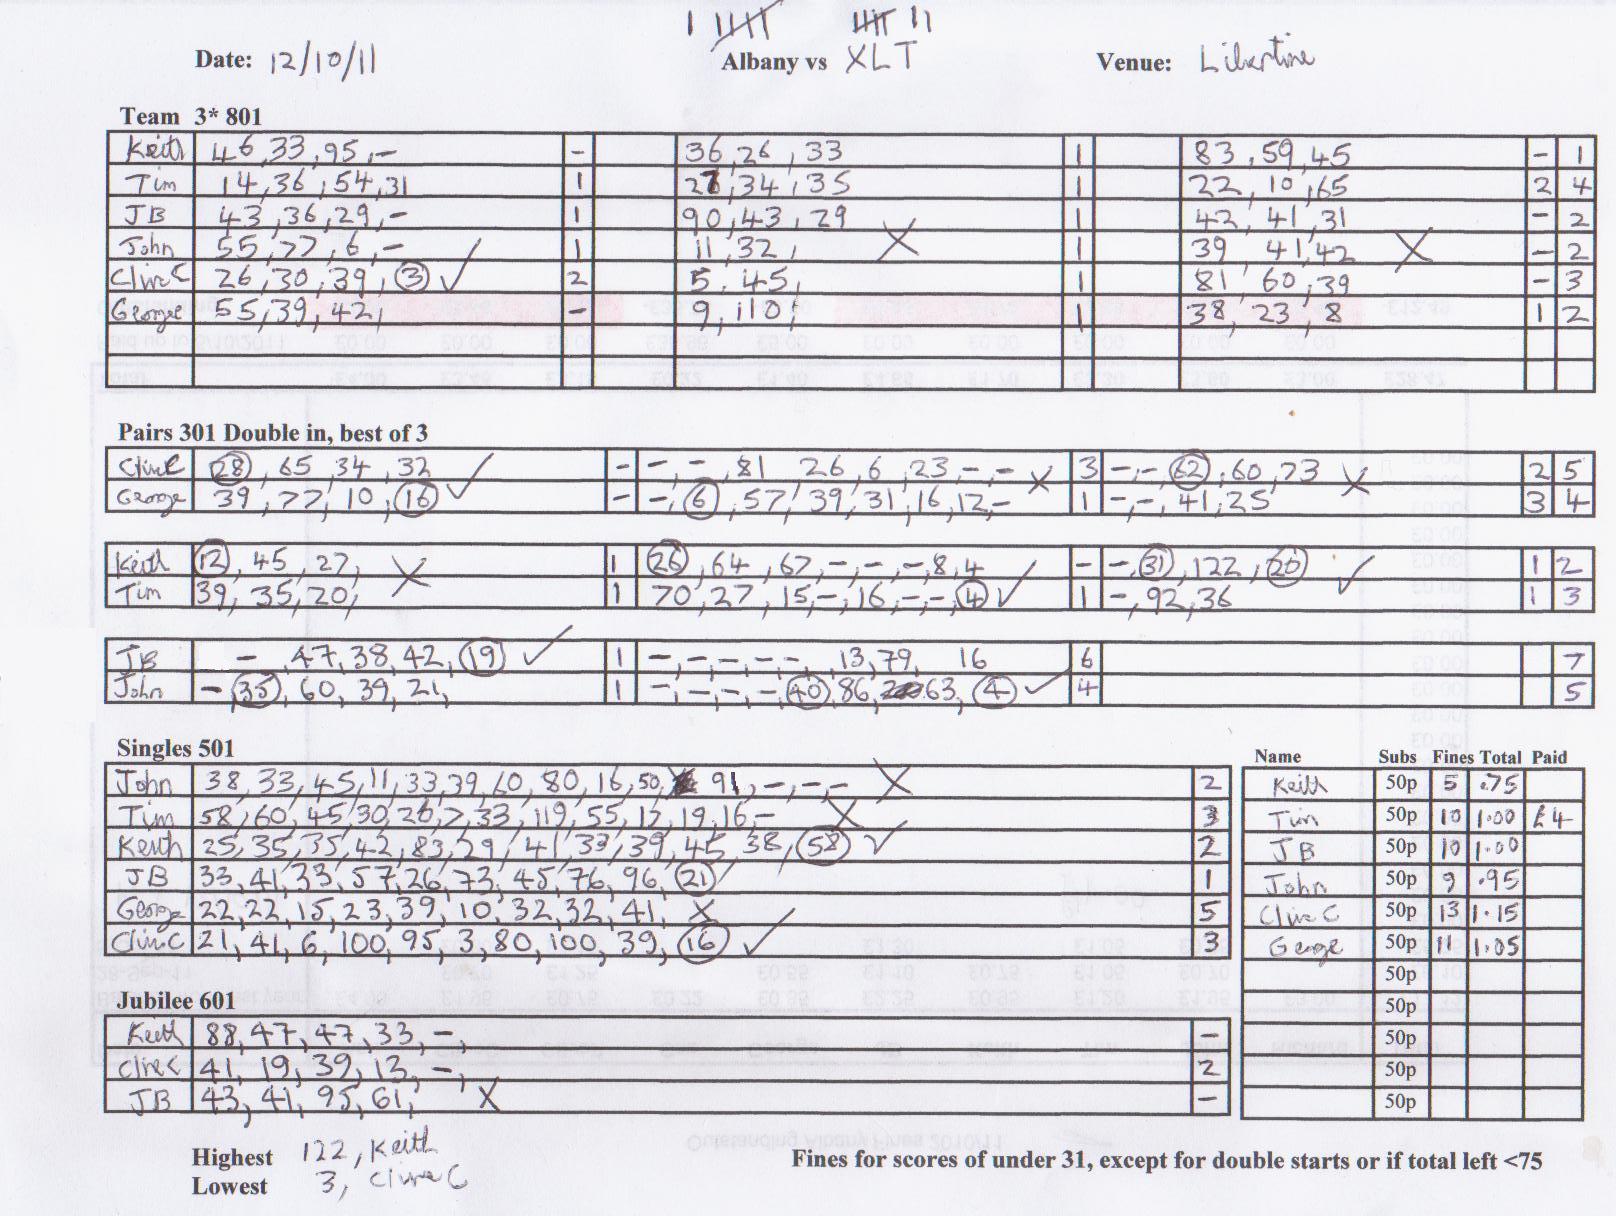 Date: 12/10/11 Albany vs XLT Venue: Libertine
Team 3* 801
Keith 46,33,95,- - 36,26,33 1 83,59,45 - 1
Tim 14,36,54,31 1 27,34,35 1 22,10,65 2 4
JB 43,36,29,- 1 90,43,29 1 42,41,31 - 2
John 55,77,6,- ✓ 1 11,32, X 1 39,41,42 X - 2
Clive C 26,30,39,3 2 5,45, 1 81,60,39 - 3
George 55,39,42, - 9,110, 1 38,23,8 1 2
Pairs 301 Double in, best of 3
Clive C 28,65,34,32 ✓ - -,-,81 26,6,23,-,- X 3 -,-,62,60,73 X 2 5
George 39,77,10,16 - -,6,57,39,31,16,12,- 1 -,-,41,25 3 4
Keith 12,45,27, X 1 26,64,67,-,-,-,8,4 - -,31,122,20 ✓ 1 2
Tim 39,35,20, 1 70,27,15,-,16,-,-,4 ✓ 1 -,92,36 1 3
JB -,47,38,42,19 ✓ 1 -,-,-,-,-,13,79, 16 6 7
John -,35,60,39,21, 1 -,-,-,-,40,86,63,4 ✓ 4 5
Singles 501
John 38,33,45,11,33,39,60,80,16,50, 91,-,-,- X 2
Tim 58,60,45,30,26,7,33,119,55,17,19,16,- X 3
Keith 25,35,35,42,83,29,41,33,39,45,38,58 ✓ 2
JB 33,41,33,57,26,73,45,76,96,21 ✓ 1
George 22,22,15,23,39,10,32,32,41, X 5
Clive C 21,41,6,100,95,3,80,100,39,16 ✓ 3
Name Subs Fines Total Paid
Keith 50p 5 .75
Tim 50p 10 1.00 £4
JB 50p 10 1.00
John 50p 9 .95
Clive C 50p 13 1.15
George 50p 11 1.05
50p
50p
50p
50p
50p
Jubilee 601
Keith 88,47,47,33,-, -
Clive C 41,19,39,13,-, 2
JB 43,41,95,61, X -
Highest 122, Keith
Lowest 3, Clive C
Fines for scores of under 31, except for double starts or if total left <75